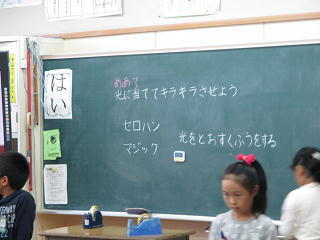 はい
めあて
光に当ててキラキラさせよう
セロハン
マジック
光をとおすくふうをする